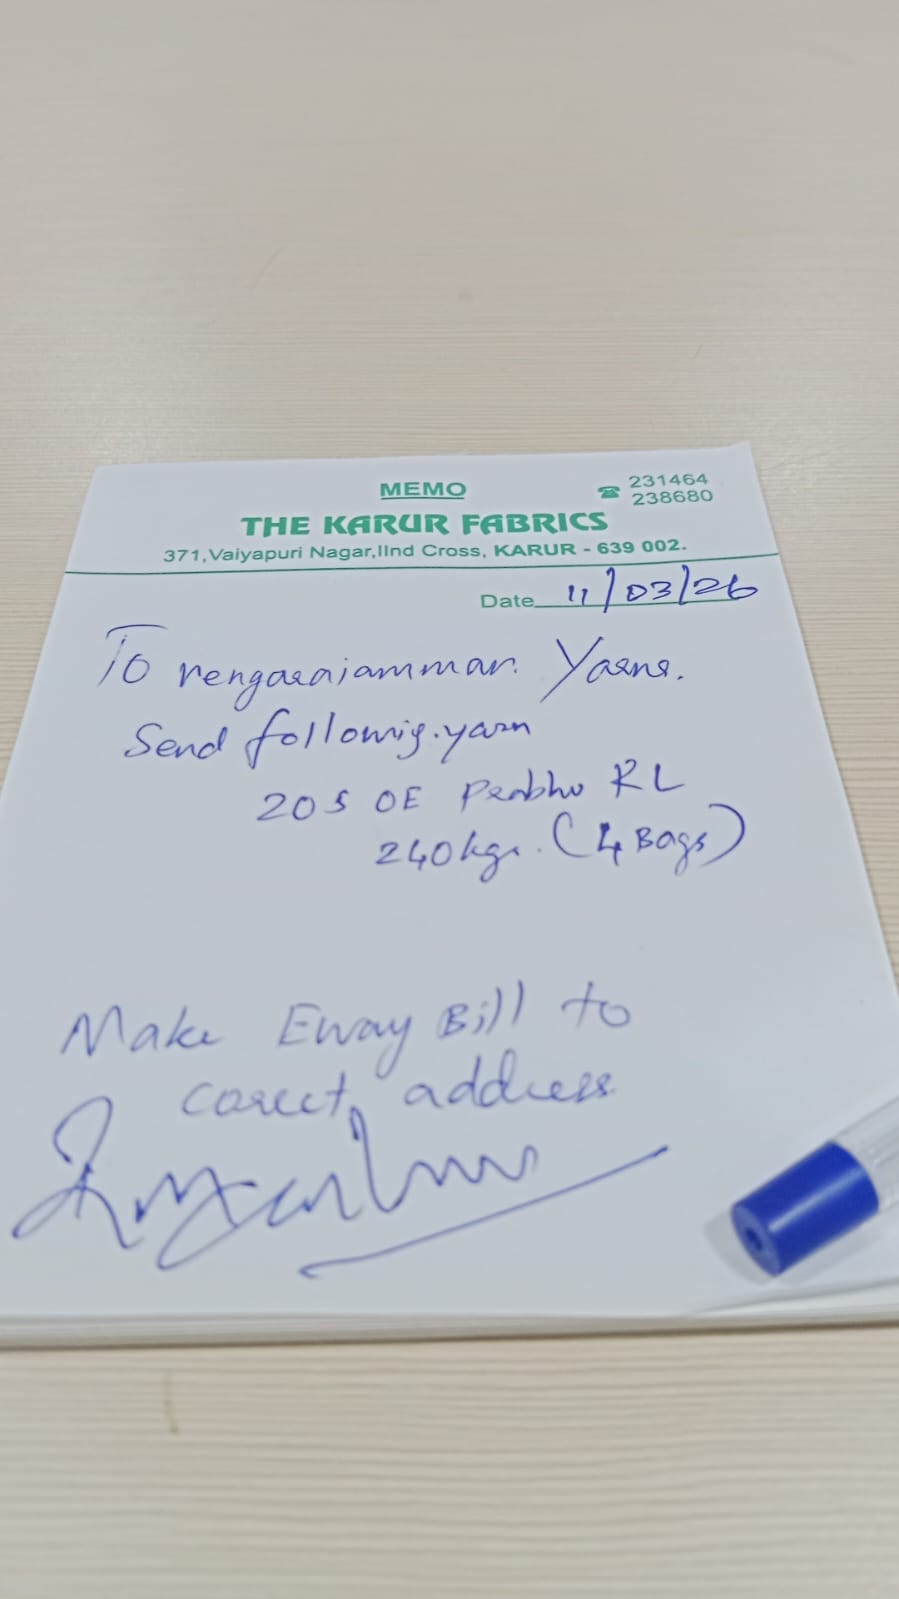 MEMO
☎ 231464
238680
THE KARUR FABRICS
371, Vaiyapuri Nagar, IInd Cross, KARUR - 639 002.
Date 11/03/26
To rengarajammar. Yarns.
Send followig. yarn
20s OE Prabhu RL
240 kgs. (4 Bags)
Make Eway Bill to
corect, address